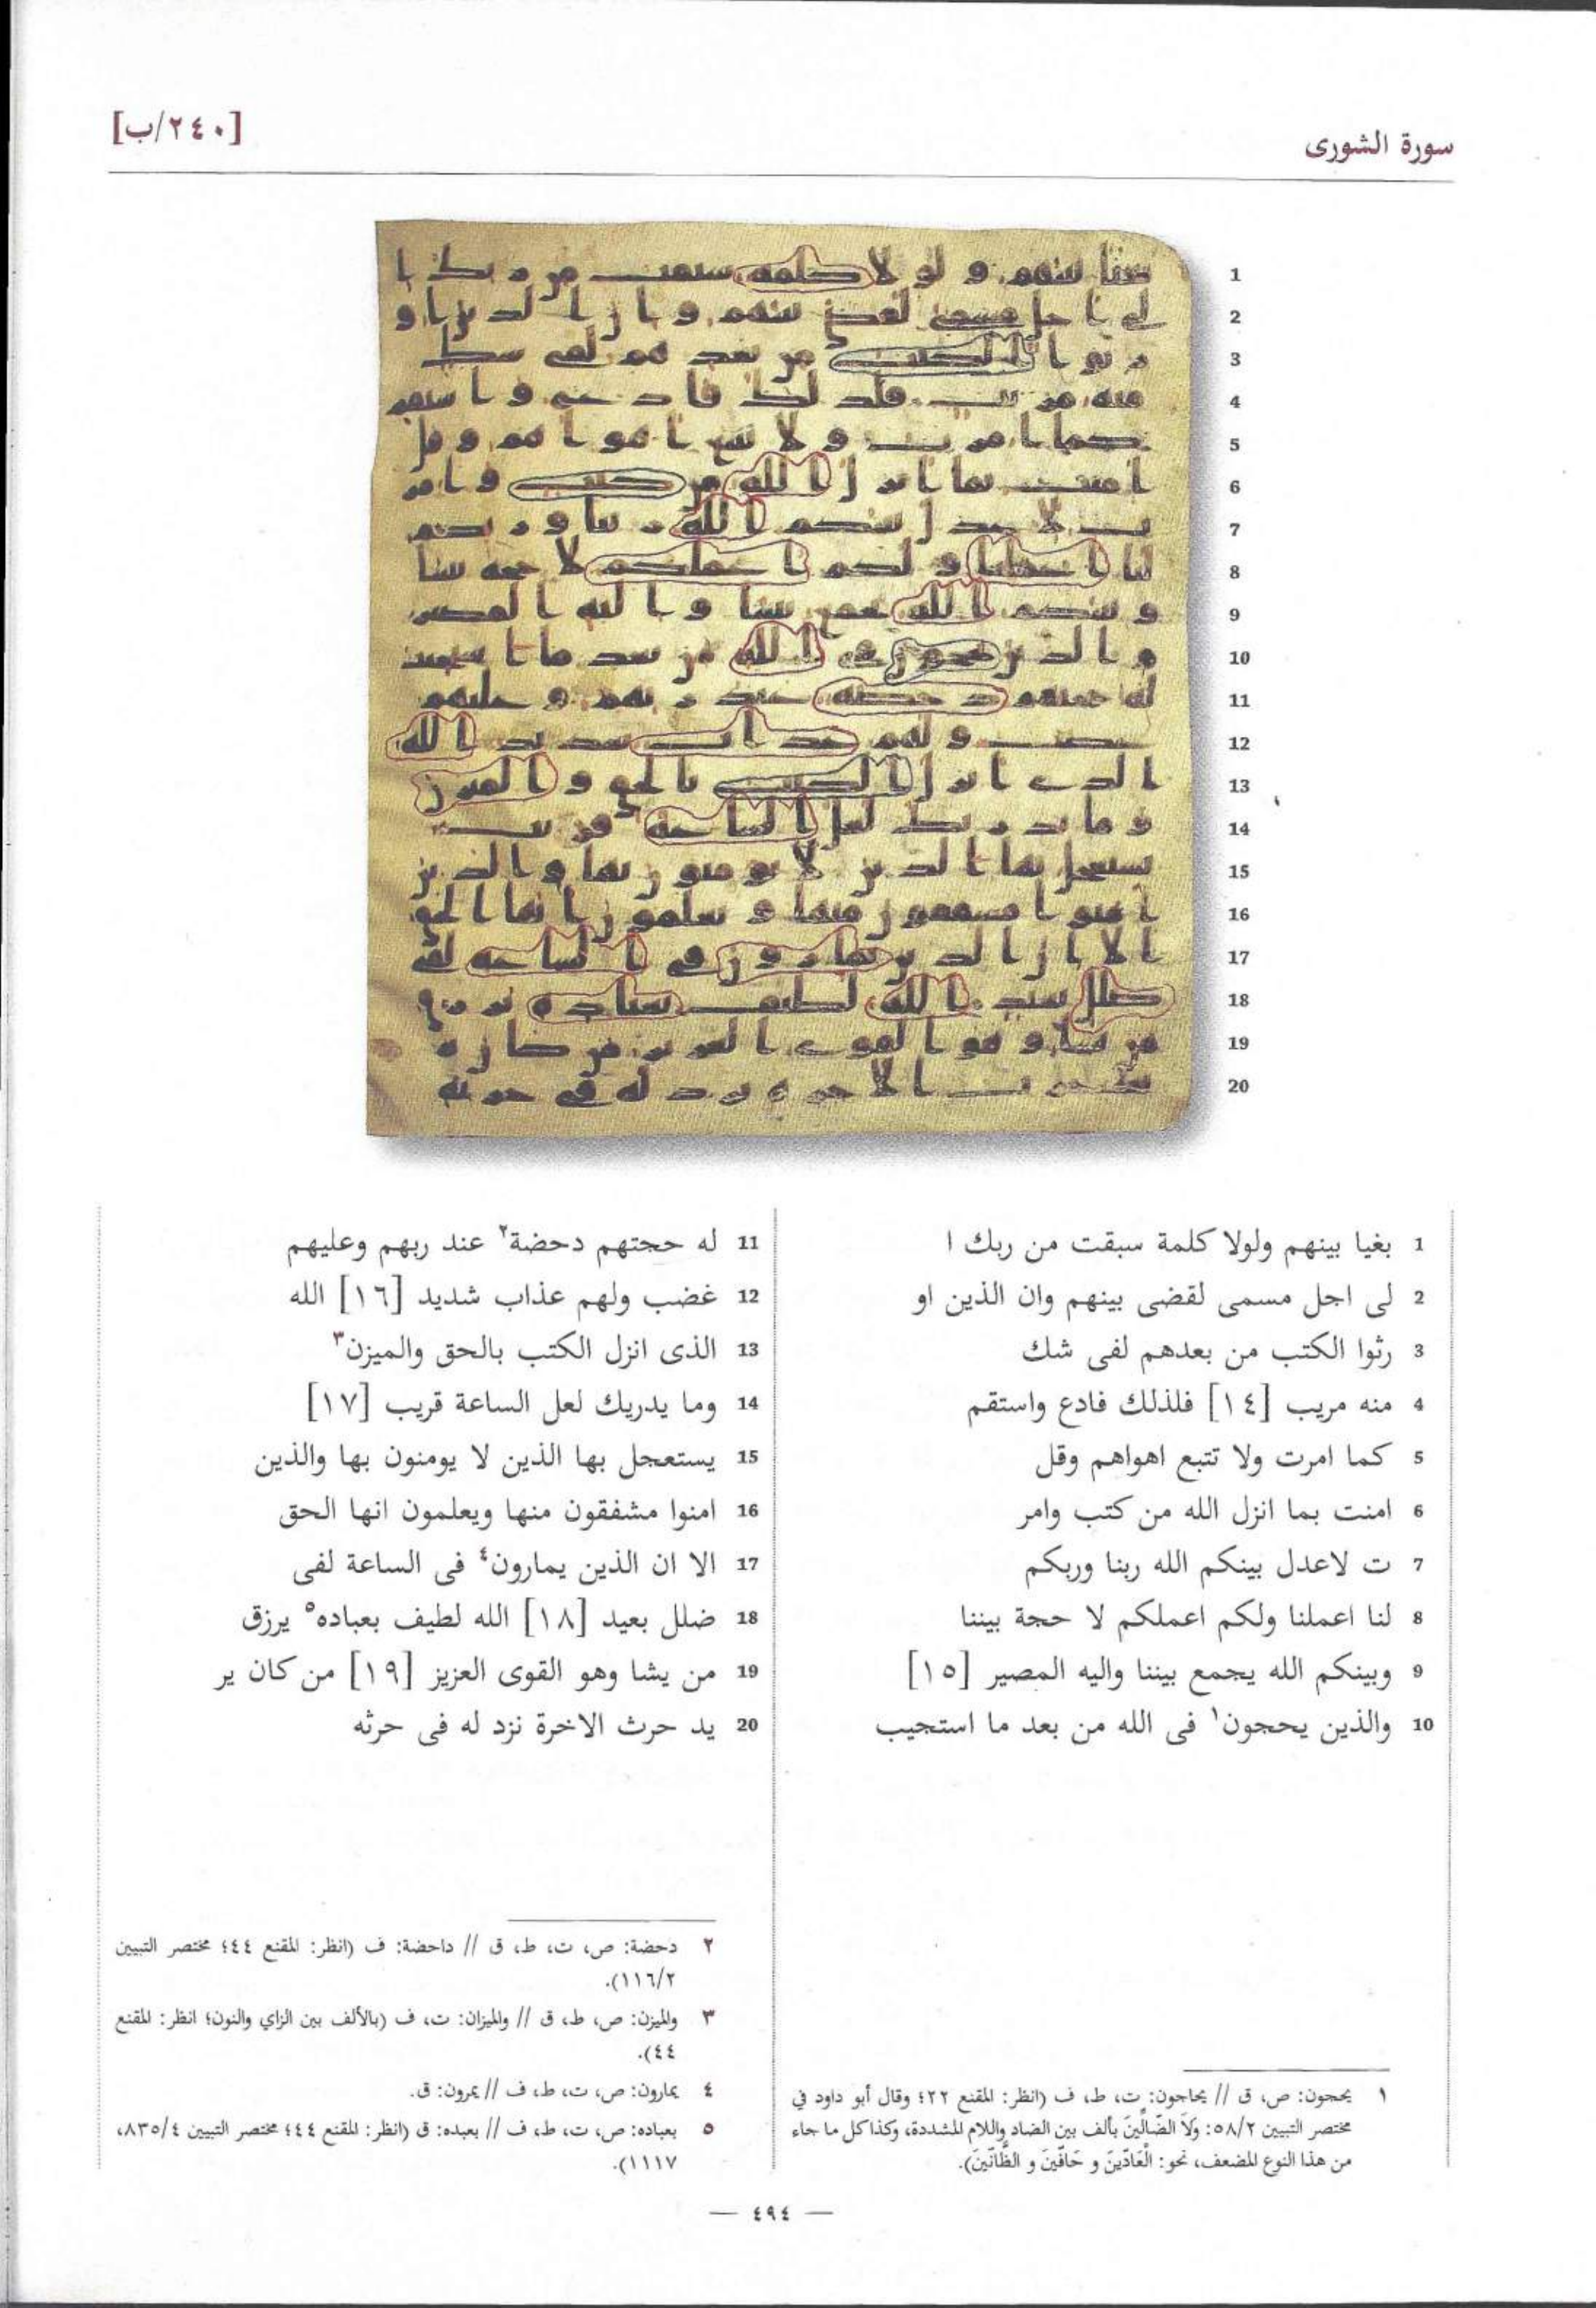 سورة الشورى
[٢٤٠/ب]
1 بغيا بينهم ولولا كلمة سبقت من ربك ا
2 لى اجل مسمى لقضى بينهم وان الذين او
3 رثوا الكتب من بعدهم لفى شك
4 منه مريب [١٤] فلذلك فادع واستقم
5 كما امرت ولا تتبع اهواهم وقل
6 امنت بما انزل الله من كتب وامر
7 ت لاعدل بينكم الله ربنا وربكم
8 لنا اعملنا ولكم اعملكم لا حجة بيننا
9 وبينكم الله يجمع بيننا واليه المصير [١٥]
10 والذين يحجون١ فى الله من بعد ما استجيب
11 له حجتهم دحضة٢ عند ربهم وعليهم
12 غضب ولهم عذاب شديد [١٦] الله
13 الذى انزل الكتب بالحق والميزن٣
14 وما يدريك لعل الساعة قريب [١٧]
15 يستعجل بها الذين لا يومنون بها والذين
16 امنوا مشفقون منها ويعلمون انها الحق
17 الا ان الذين يمارون٤ فى الساعة لفى
18 ضلل بعيد [١٨] الله لطيف بعباده٥ يرزق
19 من يشا وهو القوى العزيز [١٩] من كان ير
20 يد حرث الاخرة نزد له فى حرثه
١ يحجون: ص، ق // يحاجون: ت، ط، ف (انظر: المقنع ٢٢؛ وقال أبو داود في
مختصر التبيين ٥٨/٢: وَلَا الضَّالِّينَ بألف بين الضاد واللام المشددة، وكذا كل ما جاء
من هذا النوع المضعف، نحو: الْعَادِّينَ و حَافِّينَ و الظَّانِّينَ).
٢ دحضة: ص، ت، ط، ق // داحضة: ف (انظر: المقنع ٤٤؛ مختصر التبيين
١١٦/٢).
٣ والميزن: ص، ط، ق // والميزان: ت، ف (بالألف بين الزاي والنون؛ انظر: المقنع
٤٤).
٤ يمارون: ص، ت، ط، ف // يمرون: ق.
٥ بعباده: ص، ت، ط، ف // بعبده: ق (انظر: المقنع ٤٤؛ مختصر التبيين ٨٣٥/٤،
١١١٧).
— ٤٩٤ —